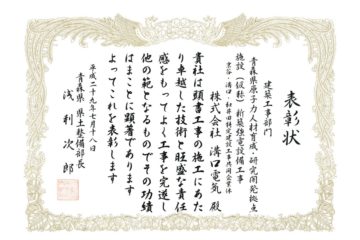 表彰状
建築工事部門
青森県原子力人材育成・研究開発拠点
施設(仮称)新築強電設備工事
京谷・溝口・和井田特定建設工事共同企業体
株式会社 溝口電気 殿
貴社は頭書工事の施工にあた
り卓越した技術と旺盛な責任
感をもってよく工事を完遂し
他の範となるものでその功績
はまことに顕著であります
よってこれを表彰します
平成二十九年七月十八日
青森県 県土整備部長
浅利次郎